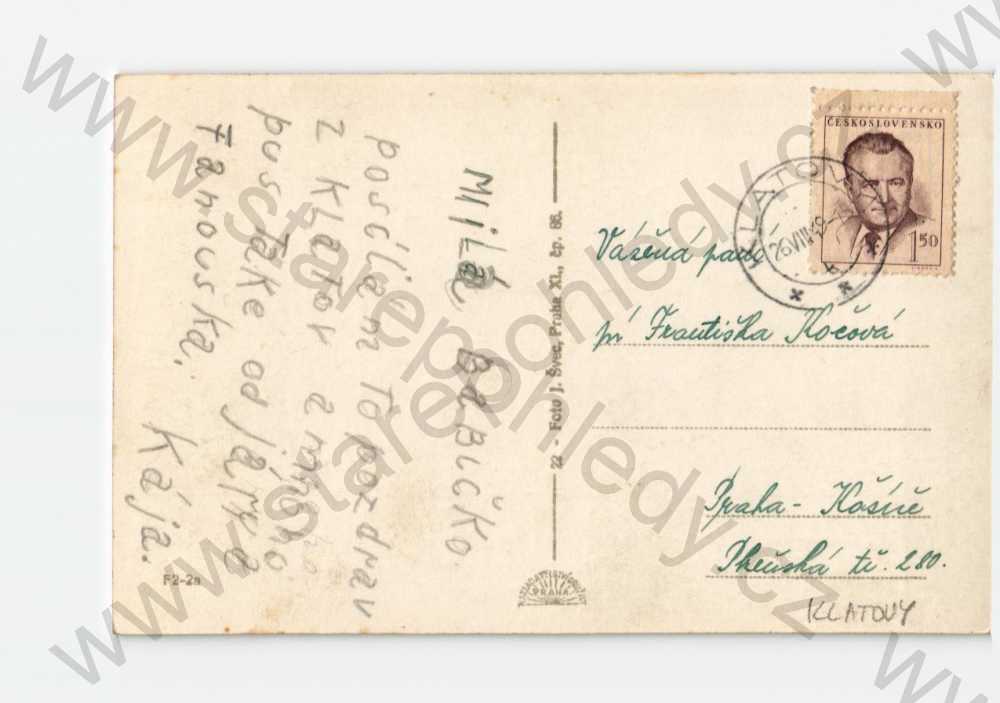 MILÁ BABIČKO
posílám TO pozdrav
z KLATOV a mnoho
pusTAke od JARKE
FANOUSKA.
KÁJA.
F2-2a
22 - Foto J. Švec, Praha XI., čp. 88.
PRAHA
ČESKOSLOVENSKO
1 50
KLATOVY
26 VIII
Vážená paní
pí Františka Kočová
Praha - Košíře
Plzeňská tř. 280.
KLATOVY
www.starepohledy.cz
www.starepohledy.cz